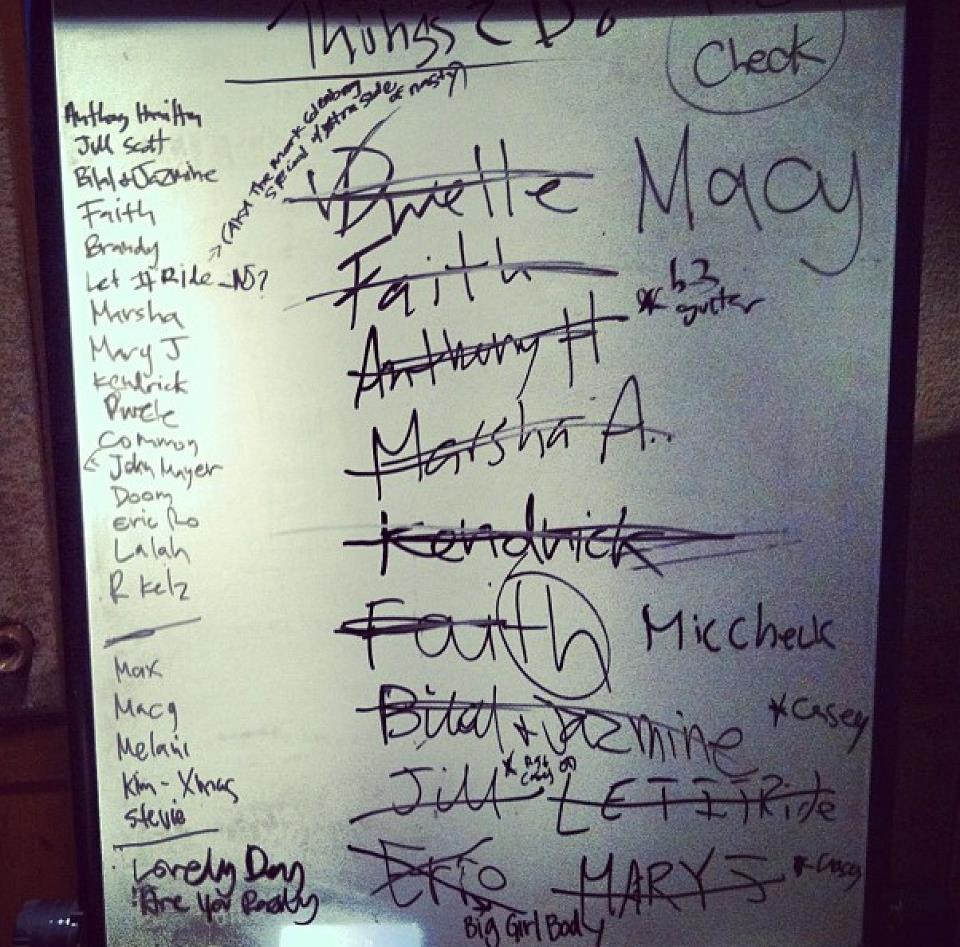 Things 2 Do
Check
Anthony Hamilton
Jill Scott
Bilal + Jazmine
Faith
Brandy
Let It Ride - NS?
(AKA The Mark
special of extra side of nasty)
Marsha
Mary J
Kendrick
Dwele
Common
John Mayer
Doom
Eric Ro
Lalah
R Kelz
Max
Macy
Melani
Kim - Xmas
Stevie
Lovely Day
Are You Ready
Dwelle
Macy
Faith
Anthony H
* b3
guitar
Marsha A.
Kendrick
Faith
Miccheck
Bilal + Jazmine
* Casey
Jill
LET IT Ride
Eric
MARY J
Big Girl Body